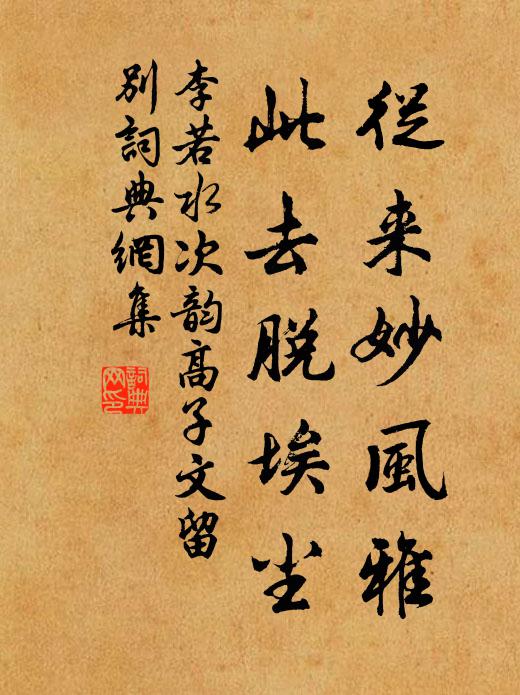 從来妙風雅
此去脱埃尘
李若水次韵高子文留
别詞典網集
詞典
网印